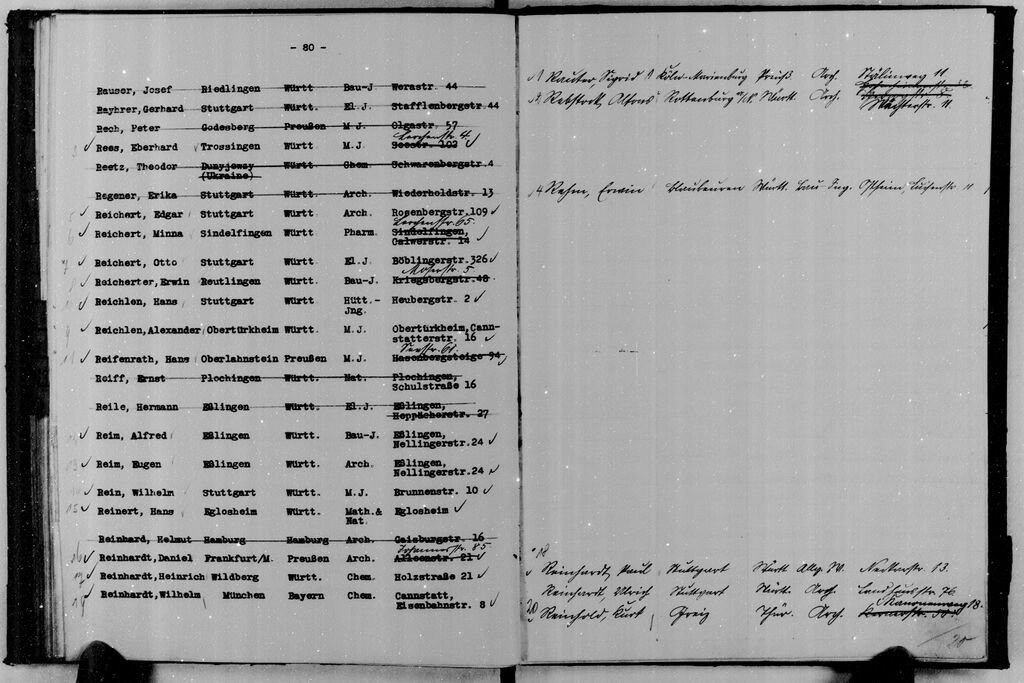 - 80 -
Rauser, Josef Riedlingen Württ Bau-J Werastr. 44
Bayhrer, Gerhard Stuttgart Württ El.J Stafflenbergstr. 44
Rech, Peter Godesberg Preußen M.J. Olgastr. 57
Lerchenstr. 4
3 Rees, Eberhard Trossingen Württ M.J. Seestr. 102
Reetz, Theodor Dunyjowsy Württ Chem Schwarenbergstr. 4
(Ukraine)
Regener, Erika Stuttgart Württ Arch. Wiederholdstr. 13
5 Reichert, Edgar Stuttgart Württ Arch. Rosenbergstr. 109
Lerchenstr. 65
6 Reichert, Minna Sindelfingen Württ Pharm. Sindelfingen,
Calwerstr. 14
7 Reichert, Otto Stuttgart Württ El.J Böblingerstr. 326
Moserstr. 5
8 Reicherter, Erwin Reutlingen Württ Bau-J Kriegsbergstr. 48
Reichlen, Hans Stuttgart Württ Hütt.- Heubergstr. 2
Jng.
9 Reichlen, Alexander Obertürkheim Württ M.J. Obertürkheim, Cann-
statterstr. 16
Seestr. 61
Reifenrath, Hans Oberlahnstein Preußen M.J. Hasenbergsteige 94
Reiff, Ernst Plochingen Württ. Nat. Plochingen,
Schulstraße 16
Reile, Hermann Eßlingen Württ. El.J. Eßlingen,
Heppächerstr. 27
Reim, Alfred Eßlingen Württ. Bau-J. Eßlingen,
Nellingerstr. 24
13 Reim, Eugen Eßlingen Württ. Arch. Eßlingen,
Nellingerstr. 24
Rein, Wilhelm Stuttgart Württ. M.J. Brunnenstr. 10
15 Reinert, Hans Eglosheim Württ. Math.& Eglosheim
Nat.
Reinhard, Helmut Hamburg Hamburg Arch. Gaisburgstr. 16
Johannesstr. 85
16 Reinhardt, Daniel Frankfurt/M. Preußen Arch. Alleenstr. 21
17 Reinhardt, Heinrich Wildberg Württ. Chem. Holzstraße 21
19 Reinhardt, Wilhelm München Bayern Chem. Cannstatt,
Eisenbahnstr. 8
1 Rauter, Sigrid Köln-Marienburg Preuß. Arch. Stälinweg 11
2 Rebstock, Alfons Rottenburg a/N. Württ. Arch.
Wächterstr. 11
4 Rehm, Erwin Blaubeuren Württ. Bau-Ing. Ostheim, Lüchenstr 11
18
Reinhardt, Paul Stuttgart Württ Allg. W. Neckarstr. 13.
Reinhardt, Ulrich Stuttgart Württ. Arch. Landhausstr. 76
Kanonenweg 18.
20 Reinhold, Kurt Greiz Thür. Arch. Kernerstr. 50
20